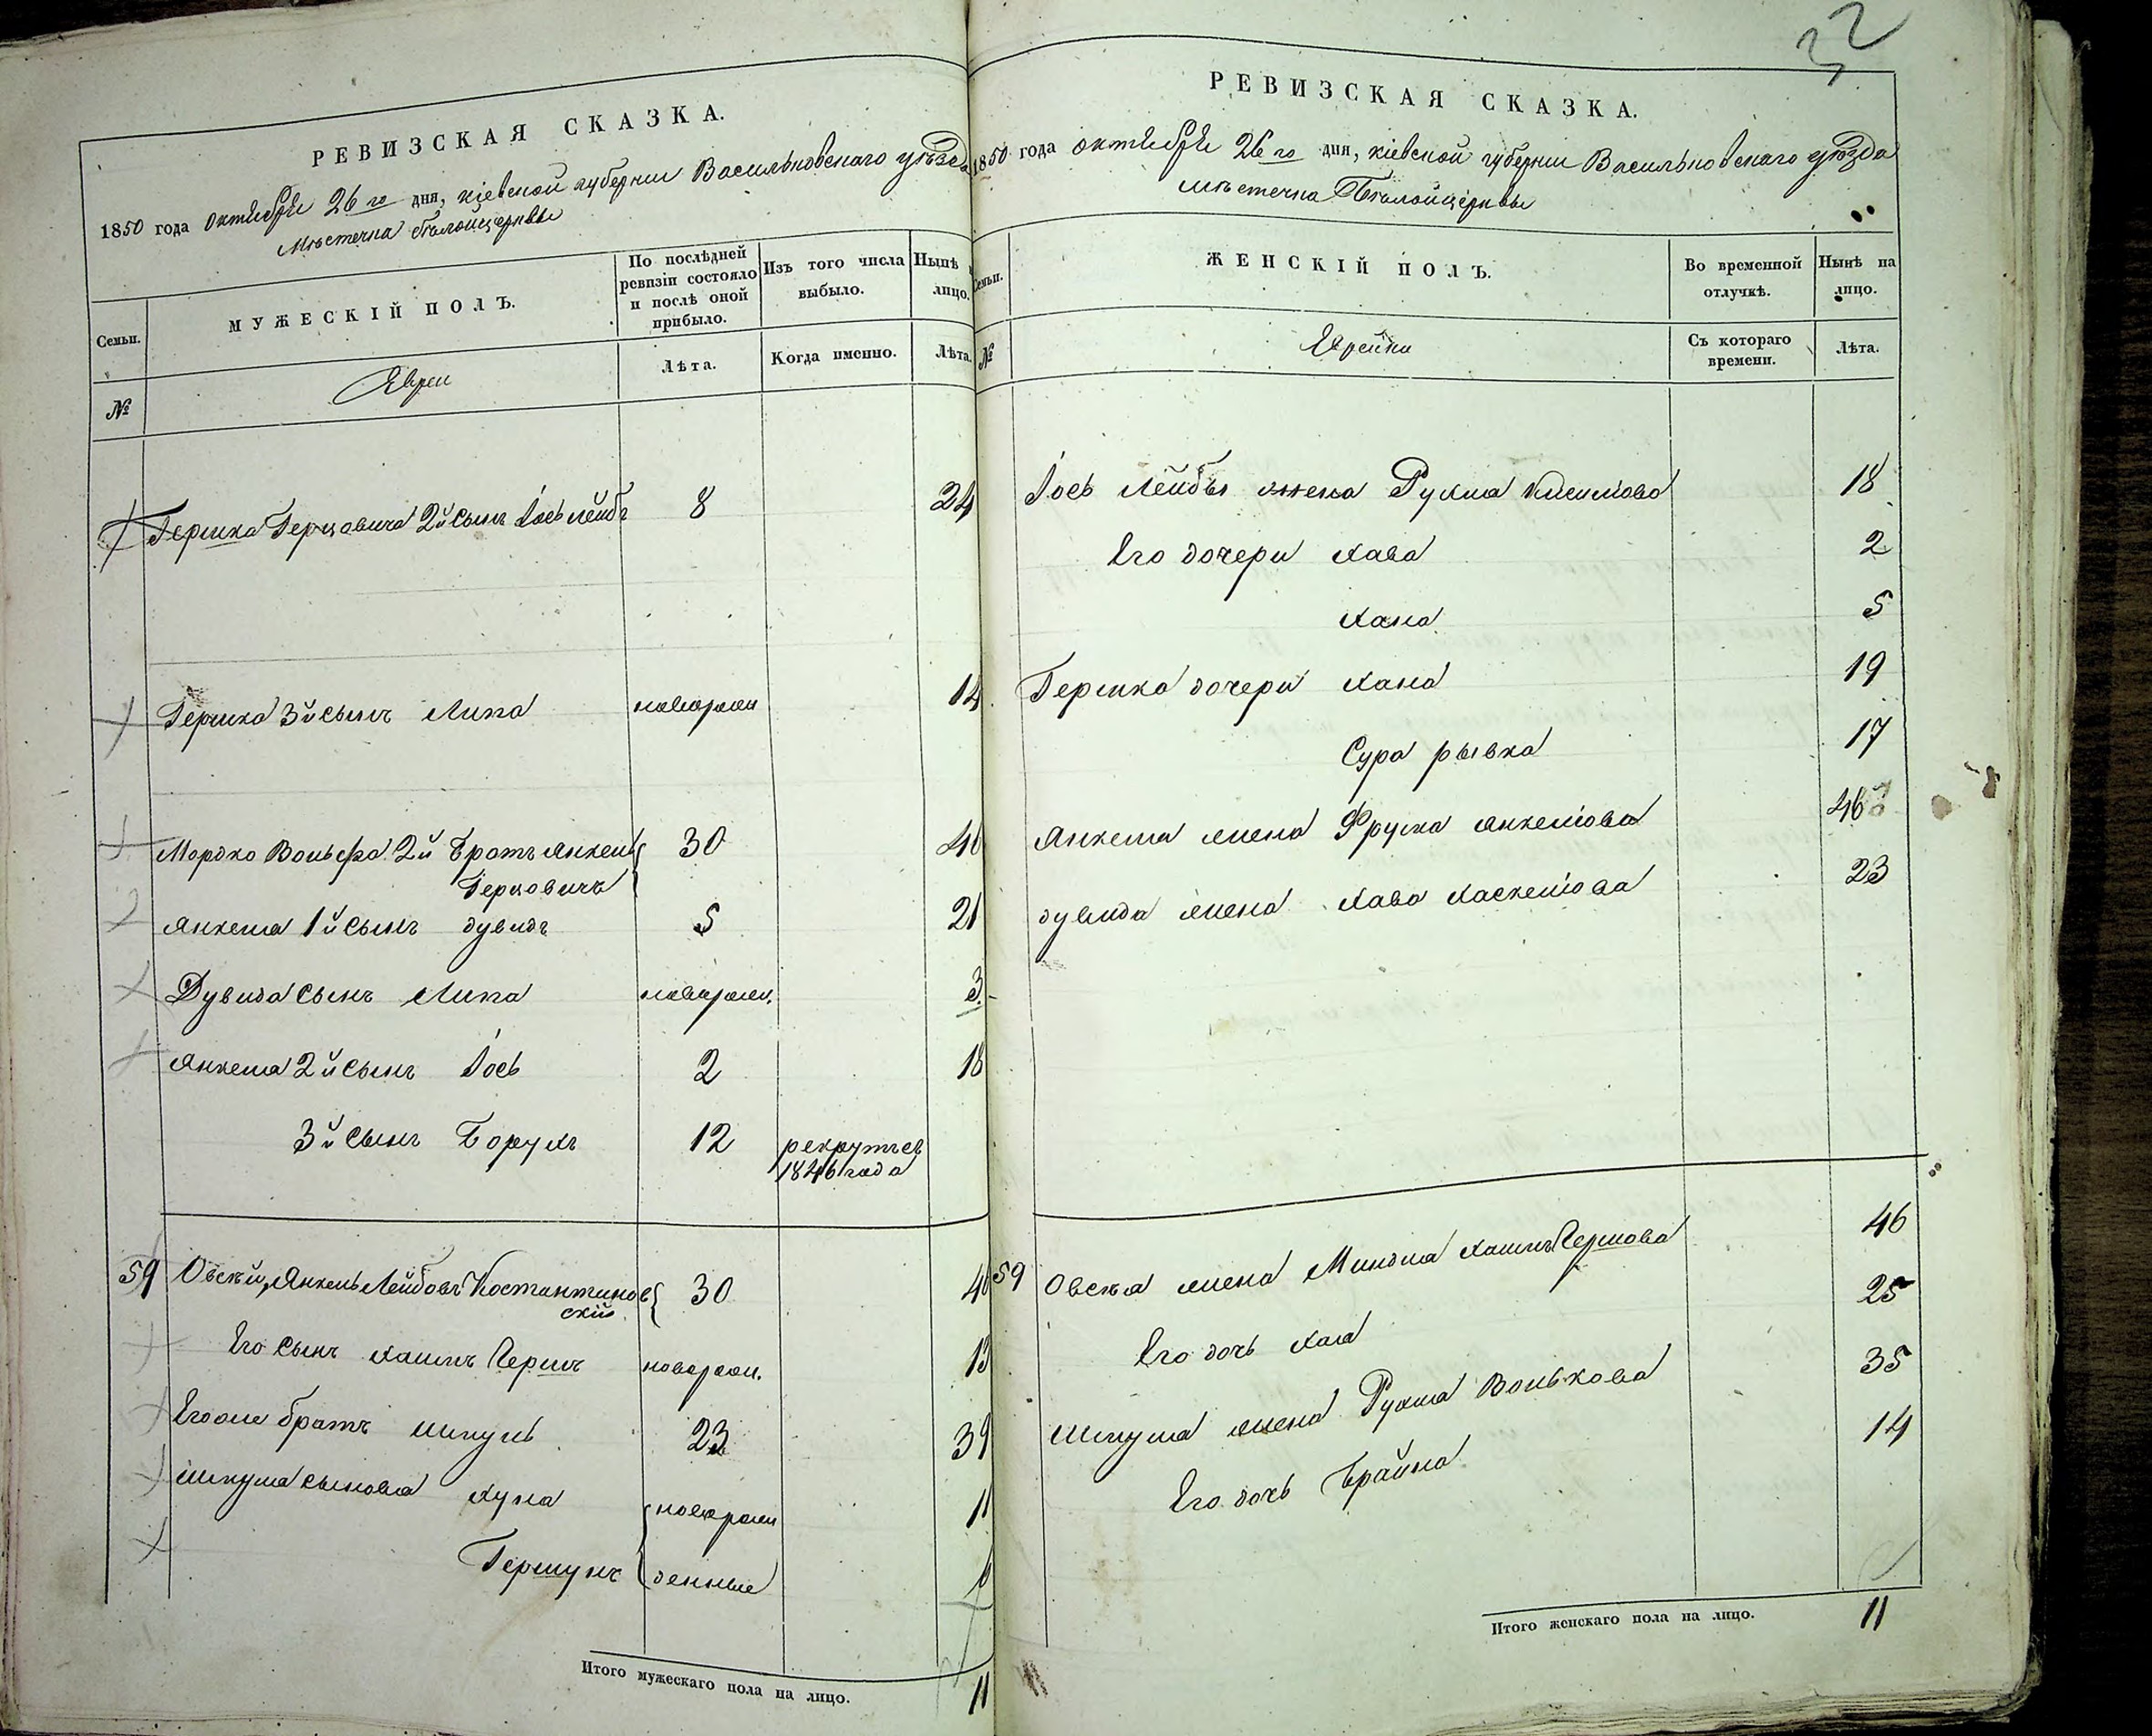 32
РЕВИЗСКАЯ СКАЗКА.
1850 года октября 26го дня, кіевской губерніи Васильковскаго уѣзда
Мѣстечка Бѣлойцеркви
Семьи.
МУЖЕСКІЙ ПОЛЪ.
По послѣдней ревизіи состояло и послѣ оной прибыло.
Изъ того числа выбыло.
Нынѣ на лицо.
№
Евреи
Лѣта.
Когда именно.
Лѣта.
Гершка Герцовича 2й сынъ Іось лейбъ 8 24
Гершка 3й сынъ Липа новорожд 14
Мордко Вольфа 2й братъ Янкель 30 46
Герцовичъ
Янкеля 1й сынъ дувидъ 5 21
Дувида сынъ Липа новорожд. 3
Янкеля 2й сынъ Іось 2 18
3й сынъ Борухъ 12 рекрутъ въ
1846 года
59 Овсѣй, Янкель Лейбовъ Костантинов 30 46
скій
Его сынъ хаимъ Гершъ новорож. 13
Его же братъ шмуль 23 39
шмуля сыновья 11
новорож
Гершунъ денные
Итого мужескаго пола на лицо. 11
РЕВИЗСКАЯ СКАЗКА.
1850 года октября 26го дня, кіевской губерніи Васильковскаго уѣзда
мѣстечка Бѣлойцеркви
Семьи.
ЖЕНСКІЙ ПОЛЪ.
Во временной отлучкѣ.
Нынѣ на лицо.
№
Еврейки
Съ котораго времени.
Лѣта.
Іось Лейбы жена Рухля 18
Его дочери хава 2
хана 5
Гершка дочери хана 19
Сура рывка 17
Янкеля жена Фрума янкелова 46
дувида жена хава хаскелова 23
59 Овсѣя жена Миндля хаимъ Гершова 46
Его дочь хая 25
шмуля жена Рухля Волькова 35
Его дочь Брайна 14
Итого женскаго пола на лицо. 11